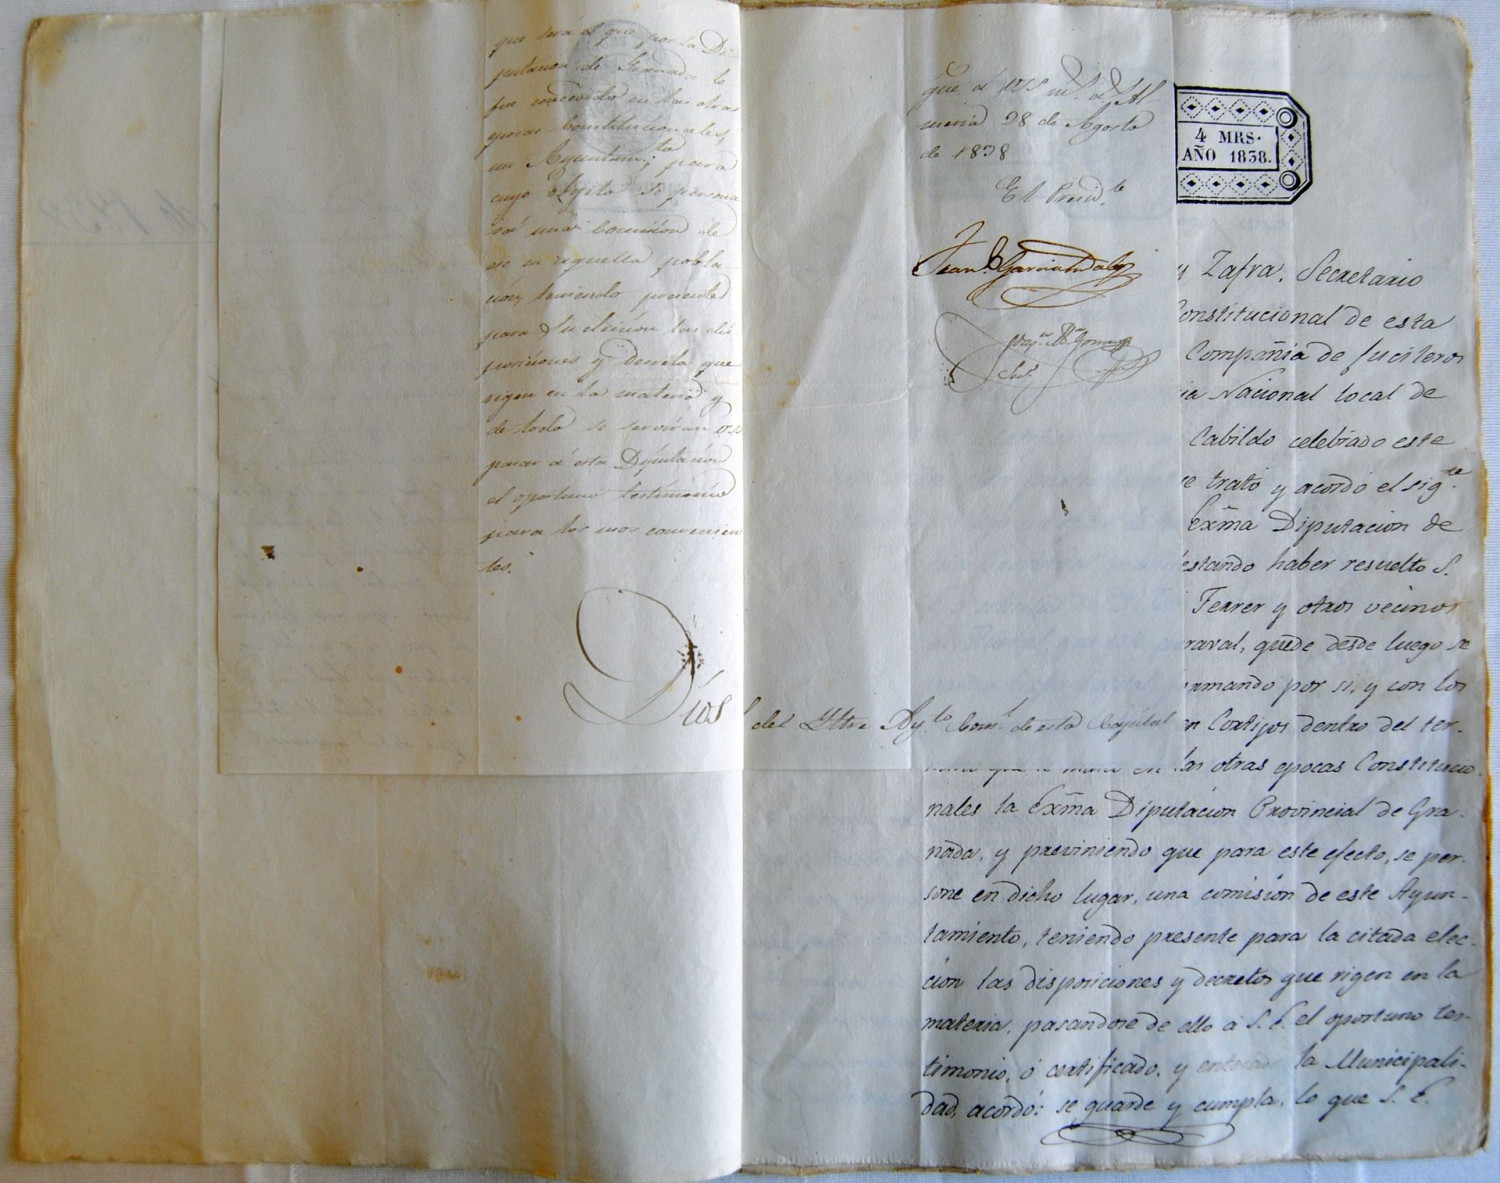 que será el que por la Di-
putacion de Granada le
fue concedido en las otras
epocas Constitucionales,
un Ayuntam.to para
cuyo objeto se persona
rá una Comision de
en aquella pobla
cion, teniendo presentes
para su eleccion las dis-
posiciones y decretos que
rigen en la materia y
de todo se servirán V.SS
pasar á esta Diputacion
el oportuno testimonio
para los usos convenien
tes.
Dios
gue á VSS m.s a.s Al
meria 28 de Agosto
de 1838
El Presid.te
Juan
del Yltre Ay.to Cons.l de esta Capital
4 MRS.
AÑO 1838.
y Zafra, Secretario
Constitucional de esta
Compañia de fucileros
Nacional local de
Cabildo celebrado este
se trató y acordó el sig.te
Exma Diputacion de
estando haber resuelto S.
Ferrer y otros vecinos
raval, quede desde luego se
rmando por si, y con los
en Cortijos dentro del ter-
las otras epocas Constitucio-
nales la Exma Diputacion Provincial de Gra-
nada, y previniendo que para este efecto, se per-
sone en dicho lugar, una comision de este Ayun-
tamiento, teniendo presente para la citada elec-
cion las disposiciones y decretos que rigen en la
materia, pasandose de ello á S. E. el oportuno tes-
timonio, ó certificado, y enterada la Municipali-
dad, acordó: se guarde y cumpla, lo que S. E.